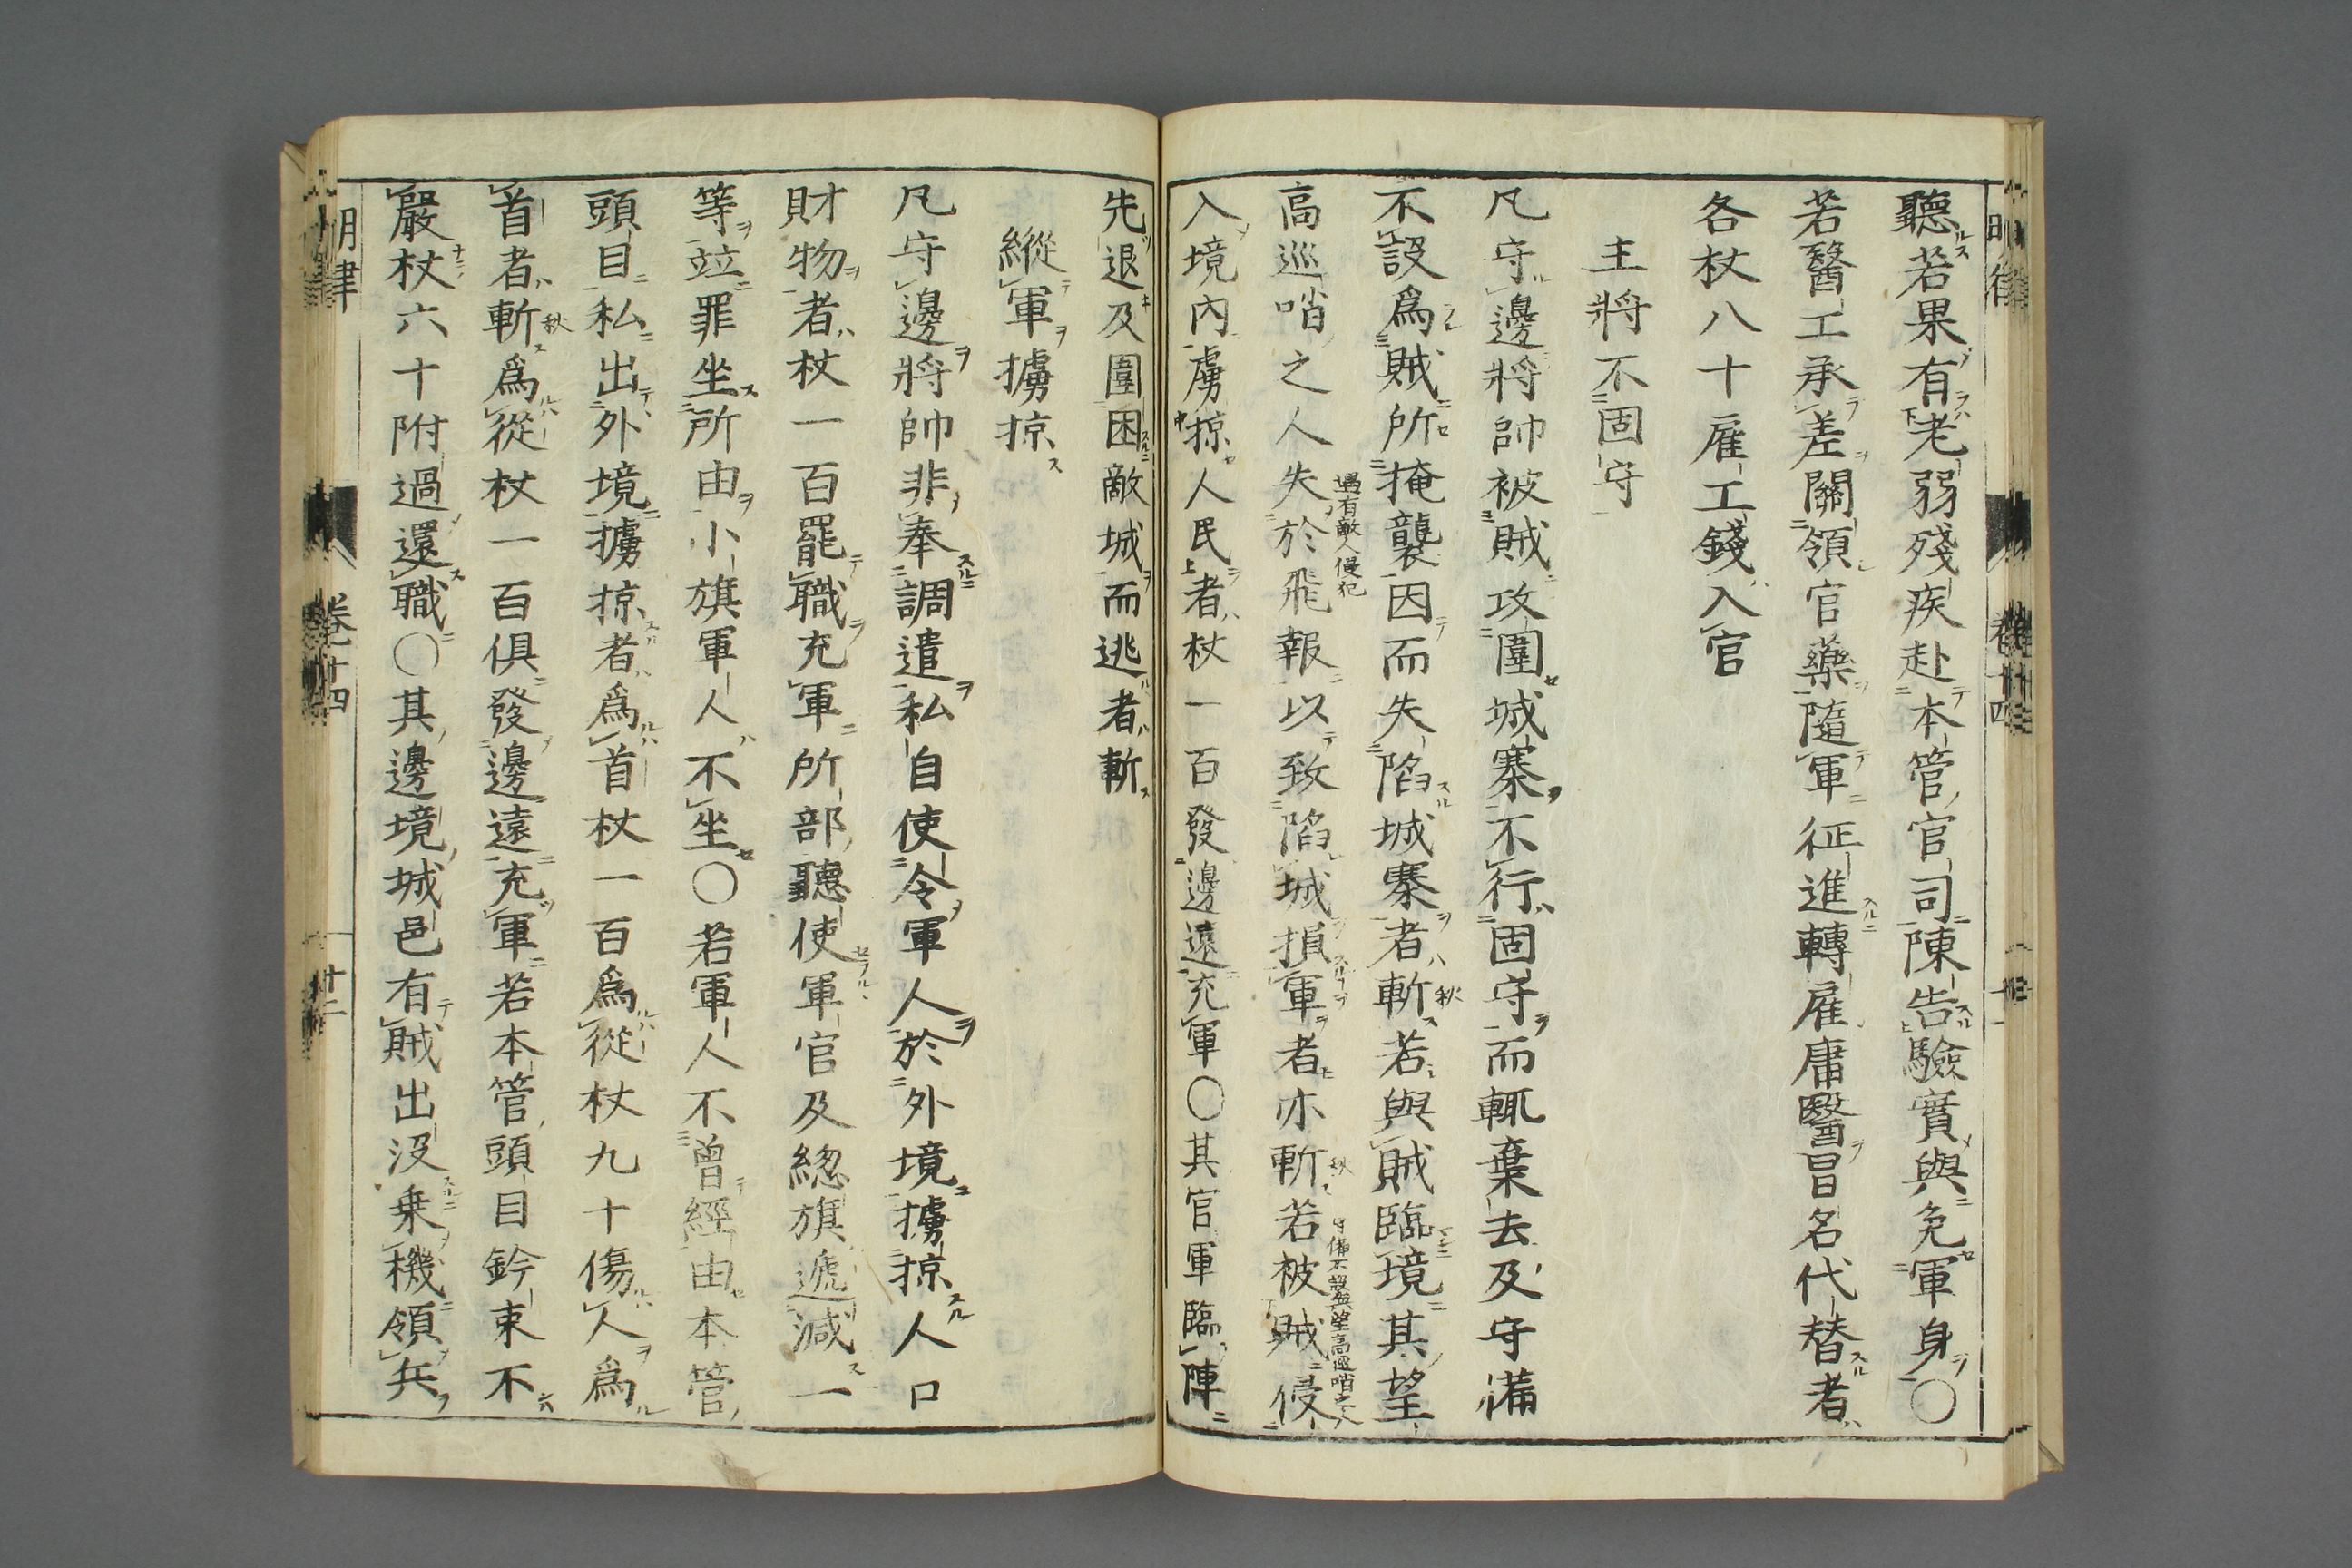 聽若果有老弱殘疾赴本管官司陳告驗實與免軍身〇
若醫工承差關領官藥隨軍征進轉雇庸醫冒名代替者
各杖八十雇工錢入官
主將不固守
凡守邊將帥被賊攻圍城寨不行固守而輒棄去及守備
不設爲賊所掩襲因而失陷城寨者斬若與賊臨境其望
高巡哨之人失於飛報以致陷城損軍者亦斬若被賊侵
入境內虜掠人民者杖一百發邊遠充軍〇其官軍臨陣
先退及圍困敵城而逃者斬
縱軍擄掠
凡守邊將帥非奉調遣私自使令軍人於外境擄掠人口
財物者杖一百罷職充軍所部聽使軍官及總旗遞減一
等竝罪坐所由小旗軍人不坐〇若軍人不曾經由本管
頭目私出外境擄掠者爲首杖一百爲從杖九十傷人爲
首者斬爲從杖一百俱發邊遠充軍若本管頭目鈐束不
嚴杖六十附過還職〇其邊境城邑有賊出沒乗機領兵
明律
卷十四
十二